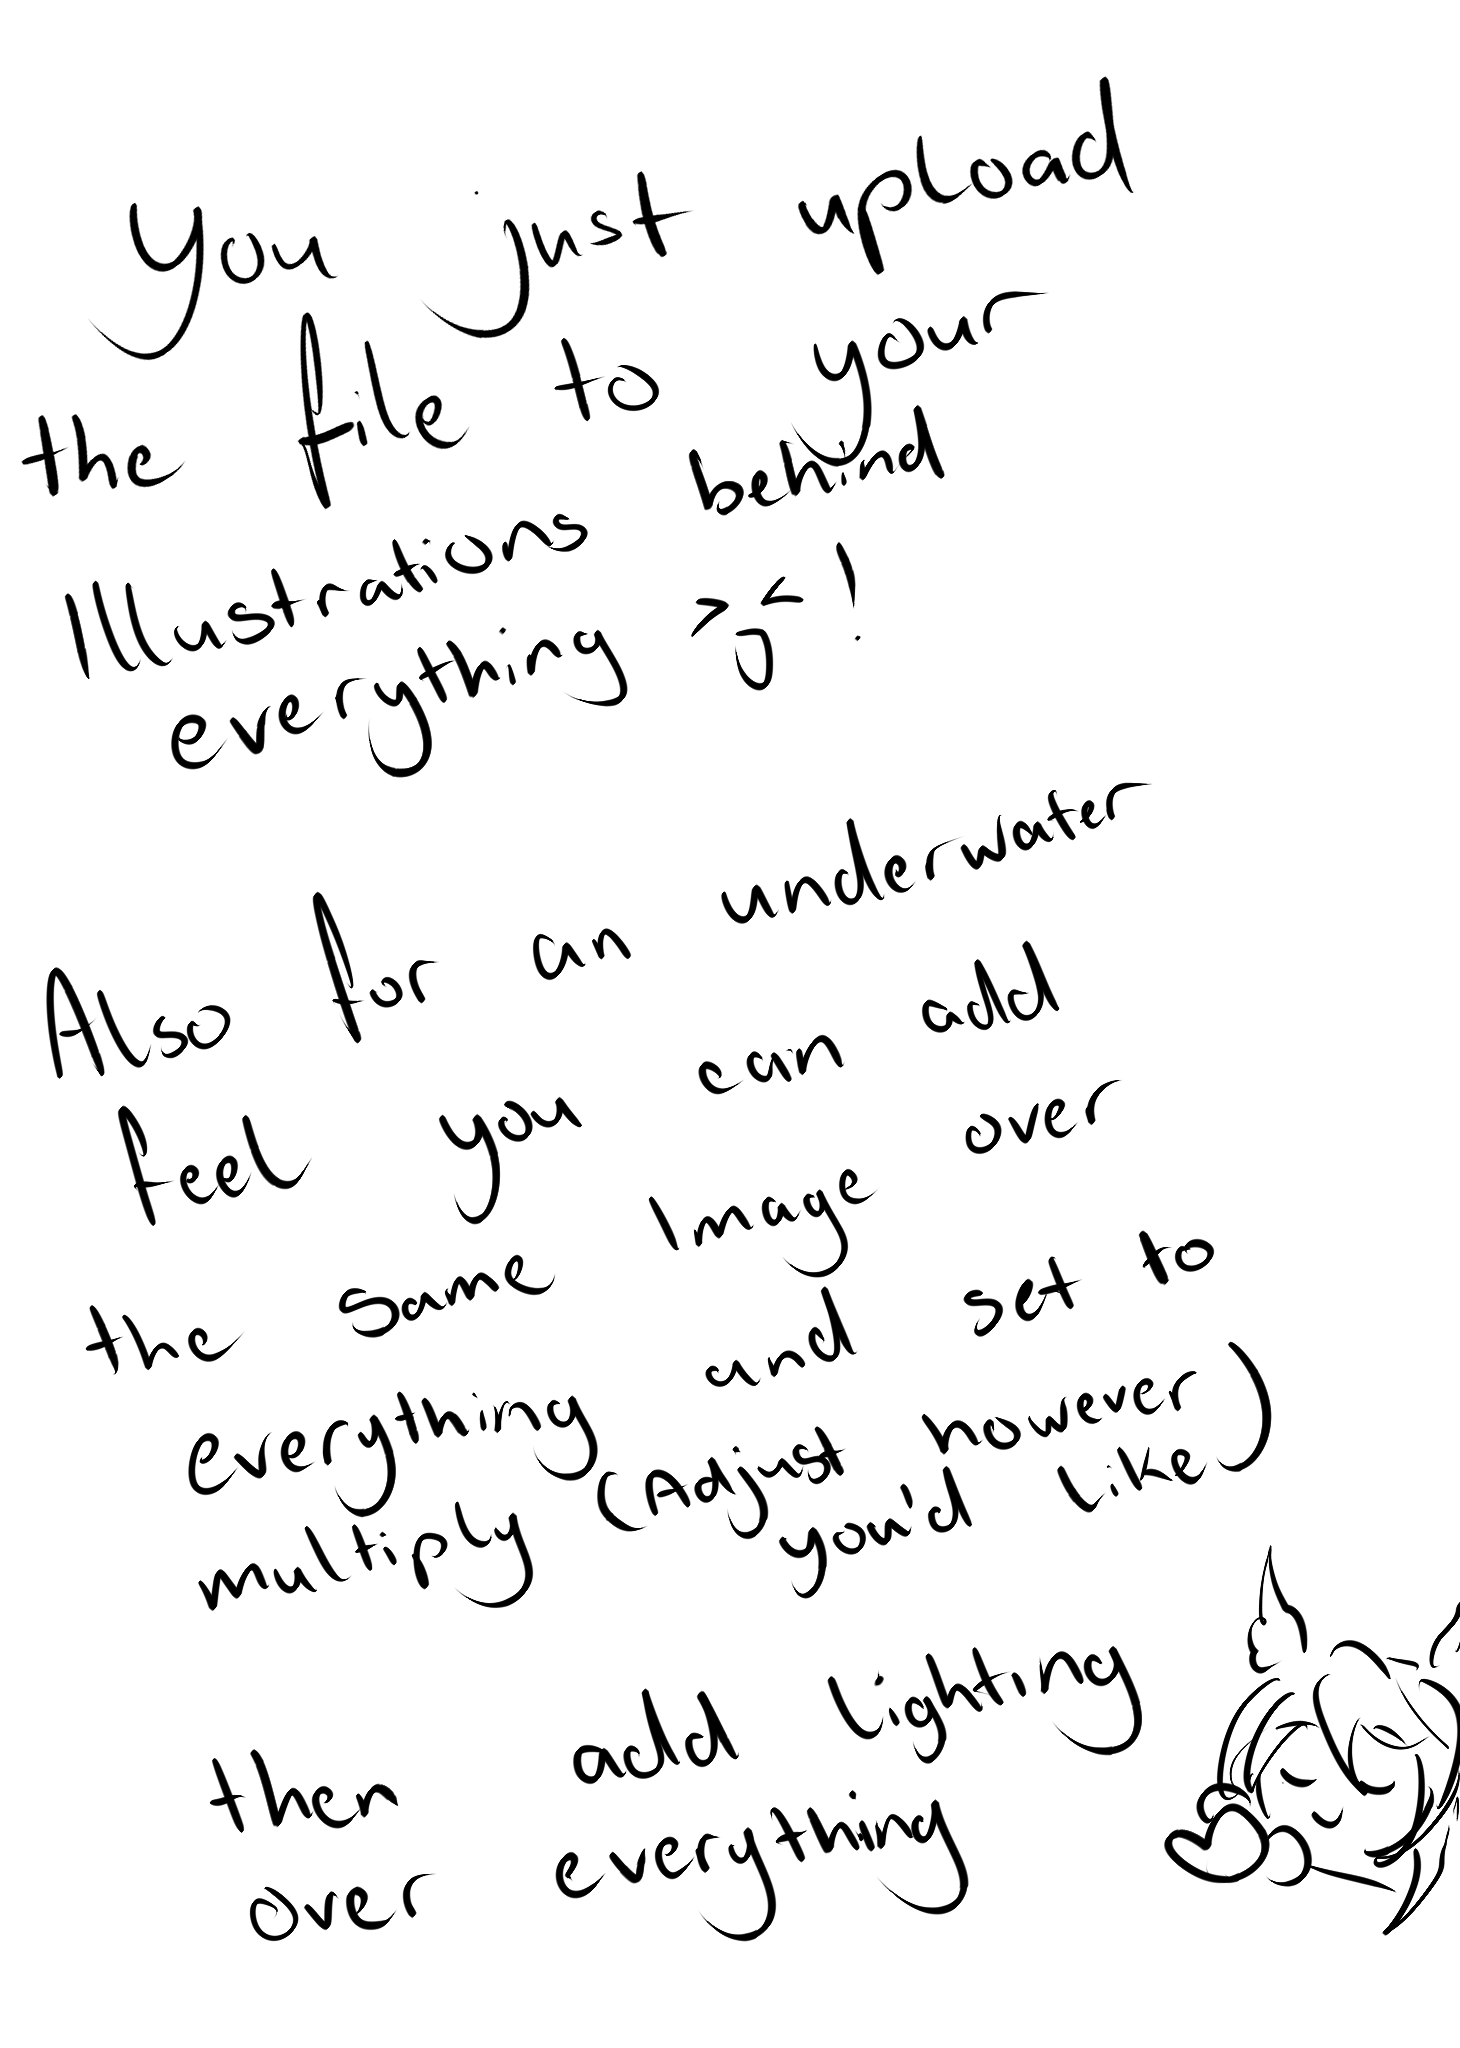 You just upload
the file to your
Illustrations behind
everything >o<!
Also for an underwater
feel you can add
the same Image over
everything and set to
multiply (Adjust however
you'd like)
then add lighting
over everything